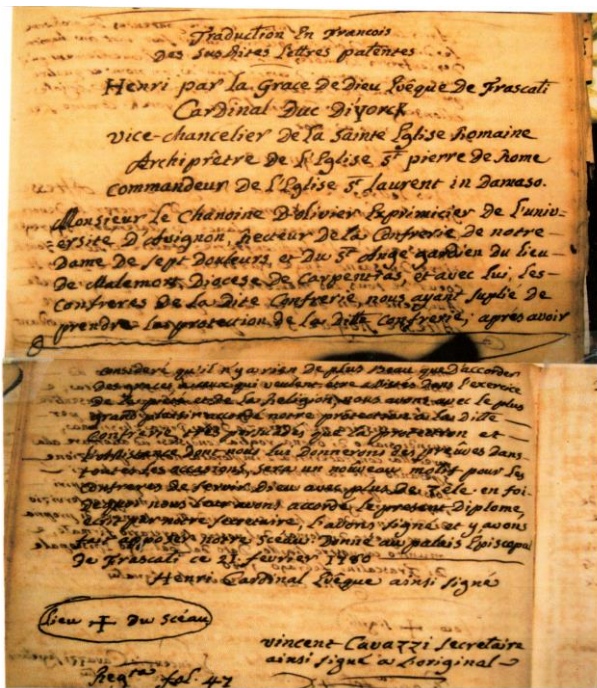 Traduction En Francois
Des Susdites Lettres patentes
Henri par la Grace de Dieu Evêque de Frascati
Cardinal Duc Diyorck
vice-chancelier de la Sainte Eglise Romaine
Archiprêtre de L'Eglise St pierre de Rome
Commandeur de L'Eglise St Laurent in Damaso.
Monsieur Le Chanoine D'olivier Exprimicier de L'univ=
=ersité D'Avignon, Recteur de la Confrerie de notre-
Dame de Sept Douleurs et du St Ange gardien du lieu-
de Malemort, Diocese de Carpentras, et avec Lui, Les-
Confreres de la Dite Confrerie, nous ayant suplié de
prendre Les protection de La Ditte Confrerie; après avoir
consideré qu'il n'y a rien de plus Beau que d'accorder
des graces a ceux qui veulent etre dans L'exercice
de la pieté et de la Religion, nous avons avec le plus
grand plaisir accordé notre protection a La Ditte
Confrerie que La protection et
L'assistance dont nous Lui Donnerons des preuves dans
toutes Les occasions, sera un nouveau motif pour Les
Confreres de servir Dieu avec plus de Zéle en foi-
de quoi nous Leur avons accordé Le present Diplome,
ecrit par notre Secretaire, L'avons signé et y avons
fait apposer notre Sceau. Donné au palais Episcopal
de Frascati ce 21 fevrier 1780
Henri Cardinal Evêque ainsi signé
Lieu + Du Scéau
vincent Cavazzi Secretaire
ainsi signé a L'original
Regta fol. 47